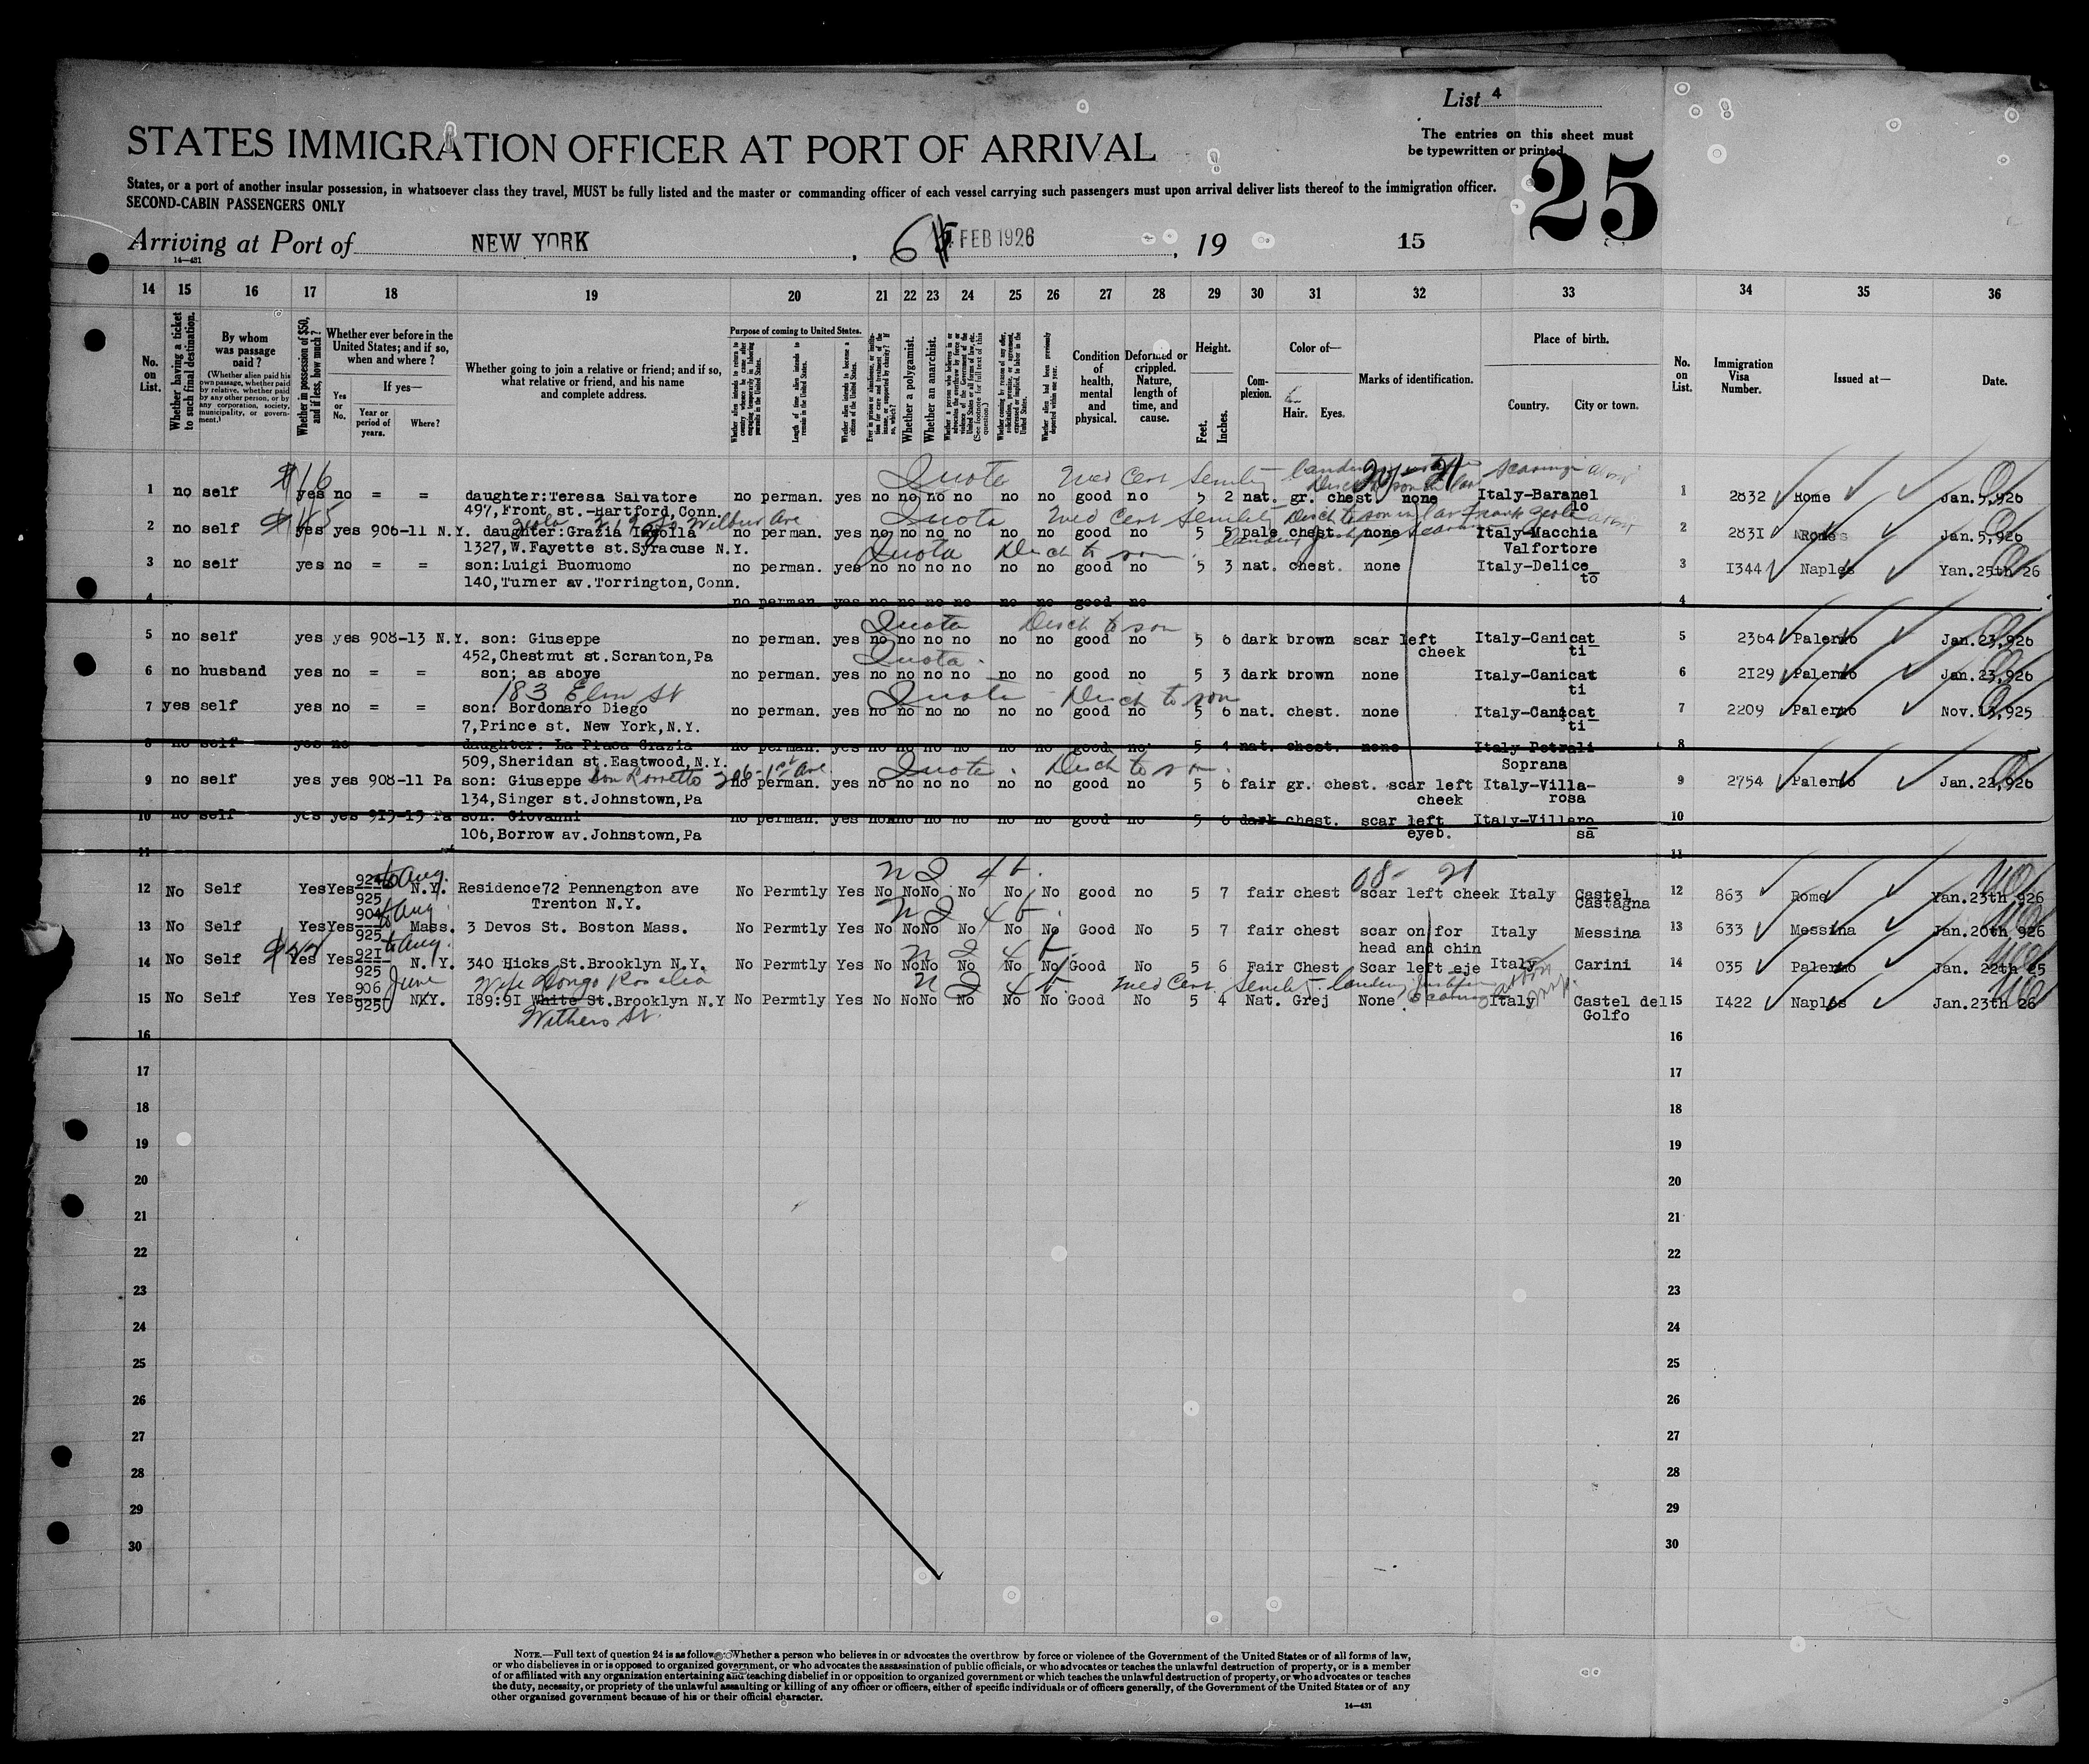 List 4
The entries on this sheet must
be typewritten or printed.
STATES IMMIGRATION OFFICER AT PORT OF ARRIVAL
25
States, or a port of another insular possession, in whatsoever class they travel, MUST be fully listed and the master or commanding officer of each vessel carrying such passengers must upon arrival deliver lists thereof to the immigration officer.
SECOND-CABIN PASSENGERS ONLY
Arriving at Port of NEW YORK , 6 FEB 1926 , 19 15
14—431
14 15 16 17 18 19 20 21 22 23 24 25 26 27 28 29 30 31 32 33 34 35 36
No. on List.
Whether having a ticket to such final destination.
By whom was passage paid?
(Whether alien paid his own passage, whether paid by relative, whether paid by any other person, or by any corporation, society, municipality, or government.)
Whether in possession of $50, and if less, how much?
Whether ever before in the United States; and if so, when and where?
Yes or No.
If yes—
Year or period of years.
Where?
Whether going to join a relative or friend; and if so, what relative or friend, and his name and complete address.
Purpose of coming to United States.
Length of time alien intends to remain in the United States.
Whether alien intends to become a citizen of the United States.
Whether a polygamist.
Whether an anarchist.
Condition of health, mental and physical.
Deformed or crippled. Nature, length of time, and cause.
Height.
Feet. Inches.
Complexion.
Color of—
Hair. Eyes.
Marks of identification.
Place of birth.
Country. City or town.
No. on List.
Immigration Visa Number.
Issued at—
Date.
$16 Quota Med Cert Senility
1 no self yes no = = daughter:Teresa Salvatore no perman. yes no no no no no no good no 5 2 nat. gr. chest. none Italy-Baranel 1 2832 Rome Jan.5,926
497,Front st.-Hartford,Conn. lo
$45 219 So Wilbur Ave Quota Med Cert Senility
2 no self yes yes 906-11 N.Y. daughter:Grazia no perman. yes no no no no no no good no 5 5 pale chest. none Italy-Macchia 2 2831 Rome Jan.5,926
1327,W.Fayette st.Syracuse N.Y. Quota Disch to son Valfortore
3 no self yes no = = son:Luigi Buonuomo no perman. yes no no no no no no good no 5 3 nat. chest. none Italy-Delice 3 1344 Naples Yan.25th 26
140,Turner av.Torrington,Conn. to
4 no perman. yes no no no no no no good no 4
Quota Disch to son
5 no self yes yes 908-13 N.Y. son: Giuseppe no perman. yes no no no no no no good no 5 6 dark brown scar left Italy-Canicat 5 2364 Palermo Jan.23,926
452,Chestnut st.Scranton,Pa Quota cheek ti
6 no husband yes no = = son; as above no perman. yes no no no no no no good no 5 3 dark brown none Italy-Canicat 6 2129 Palermo Jan.23,926
183 Elm St Quota Disch to son ti
7 yes self yes no = = son: Bordonaro Diego no perman. yes no no no no no no good no 5 6 nat. chest. none Italy-Canicat 7 2209 Palermo Nov.13,925
7,Prince st. New York,N.Y. ti
8 no self yes no daughter: La Placa Grazia no perman. yes no no no no no no good no 5 4 nat. chest. none Italy-Petrali 8
509,Sheridan st.Eastwood,N.Y. Soprana
206-1st Ave Quota. Disch to son.
9 no self yes yes 908-11 Pa son: Giuseppe no perman. yes no no no no no no good no 5 6 fair gr. chest. scar left Italy-Villa- 9 2754 Palermo Jan.22,926
134,Singer st.Johnstown,Pa cheek rosa
10 no self yes yes 913-15 Pa son. Giovanni no perman. yes no no no no no no good no 5 6 dark chest. scar left Italy-Villaro 10
106,Borrow av.Johnstown,Pa eyeb. sa
11 11
to Aug.
12 No Self Yes Yes 925 N.Y. Residence72 Pennengton ave No Permtly Yes No No No No No No good no 5 7 fair chest scar left cheek Italy Castel 12 863 Rome Yan.23th 926
Trenton N.Y. Castagna
13 No Self Yes Yes 904 to Aug. 925 Mass. 3 Devos St. Boston Mass. No Permtly Yes No No No No No No Good No 5 7 fair chest scar on for Italy Messina 13 633 Messina Jan.20th 926
head and chin
14 No Self Yes Yes 921 to Aug. 925 N.Y. 340 Hicks St.Brooklyn N.Y. No Permtly Yes No No No No No No Good No 5 6 Fair Chest Scar left eje Italy Carini 14 035 Palermo Jan. 22th 25
Wife Longo Rosalia Med Cert Senility
15 No Self Yes Yes 906 June 925 N.Y. 189:91 White St.Brooklyn N.Y No Permtly Yes No No No No No No Good No 5 4 Nat. Grej None Italy Castel del 15 1422 Naples Jan.23th 26
Withers St. Golfo
16 16
17 17
18 18
19 19
20 20
21 21
22 22
23 23
24 24
25 25
26 26
27 27
28 28
29 29
30 30
NOTE.—Full text of question 24 is as follows: Whether a person who believes in or advocates the overthrow by force or violence of the Government of the United States or of all forms of law,
or who disbelieves in or is opposed to organized government, or who advocates the assassination of public officials, or who advocates or teaches the unlawful destruction of property, or is a member
of or affiliated with any organization entertaining and teaching disbelief in or opposition to organized government or which teaches the unlawful destruction of property, or who advocates or teaches
the duty, necessity, or propriety of the unlawful assaulting or killing of any officer or officers, either of specific individuals or of officers generally, of the Government of the United States or of any
other organized government because of his or their official character.
14—431